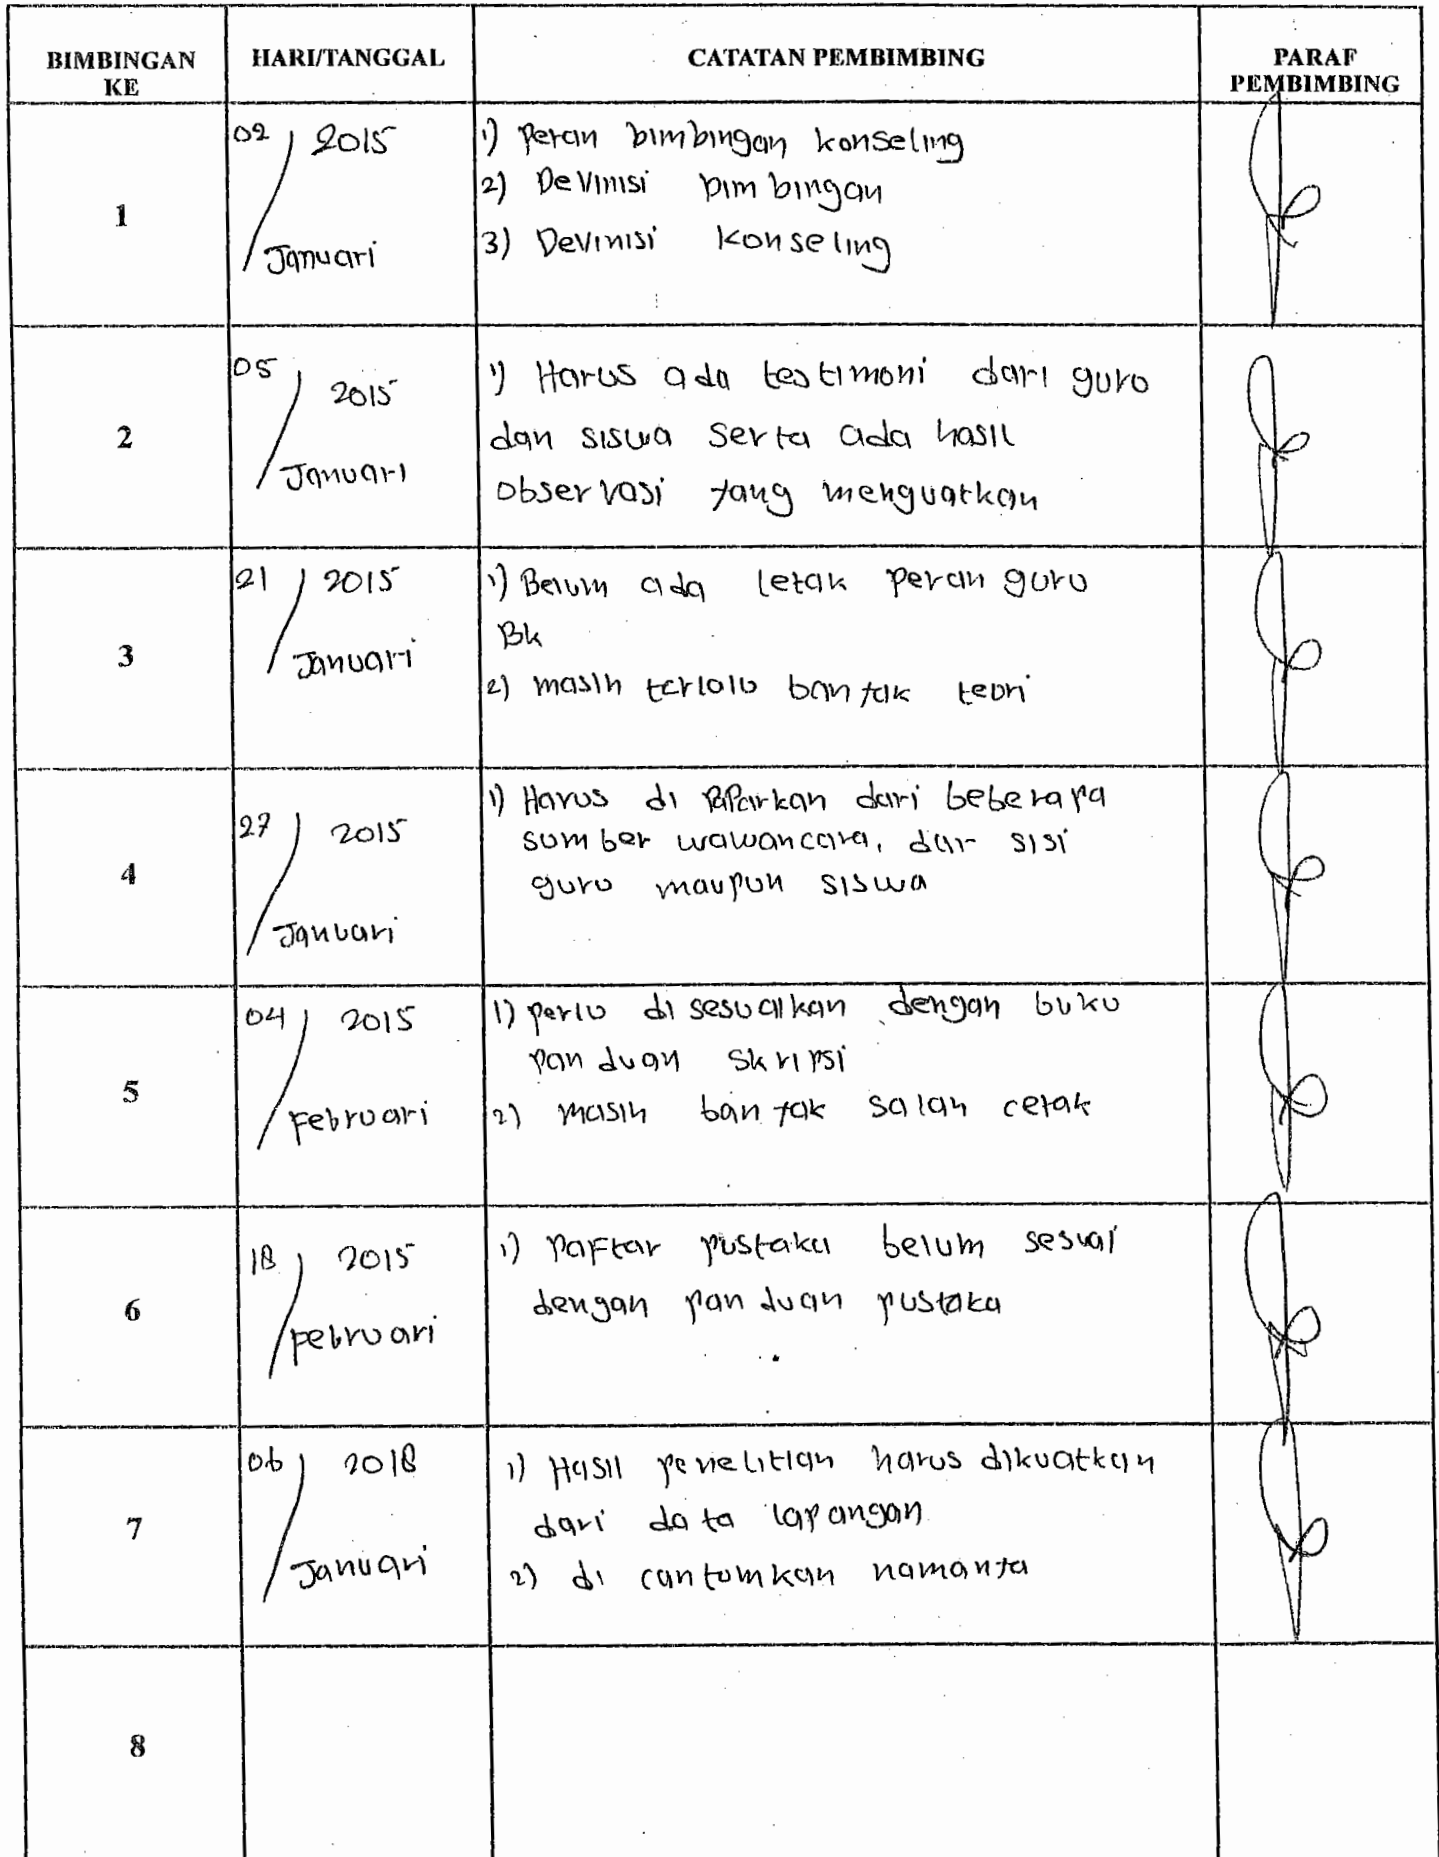 BIMBINGAN KE HARI/TANGGAL CATATAN PEMBIMBING PARAF PEMBIMBING
1
02 / 2015
Januari
1) Peran bimbingan konseling
2) Devinisi bimbingan
3) Devinisi konseling
2
05 / 2015
Januari
1) Harus ada testimoni dari guru
dan siswa serta ada hasil
observasi yang menguatkan
3
21 / 2015
Januari
1) Belum ada letak peran guru
Bk
2) masih terlalu banyak teori
4
27 / 2015
Januari
1) Harus di paparkan dari beberapa
sumber wawancara, dari sisi
guru maupun siswa
5
04 / 2015
Februari
1) perlu di sesuaikan dengan buku
panduan skripsi
2) masih banyak salah cetak
6
18 / 2015
Februari
1) Daftar pustaka belum sesuai
dengan panduan pustaka
7
06 / 2018
Januari
1) Hasil penelitian harus dikuatkan
dari data lapangan
2) di cantumkan namanya
8